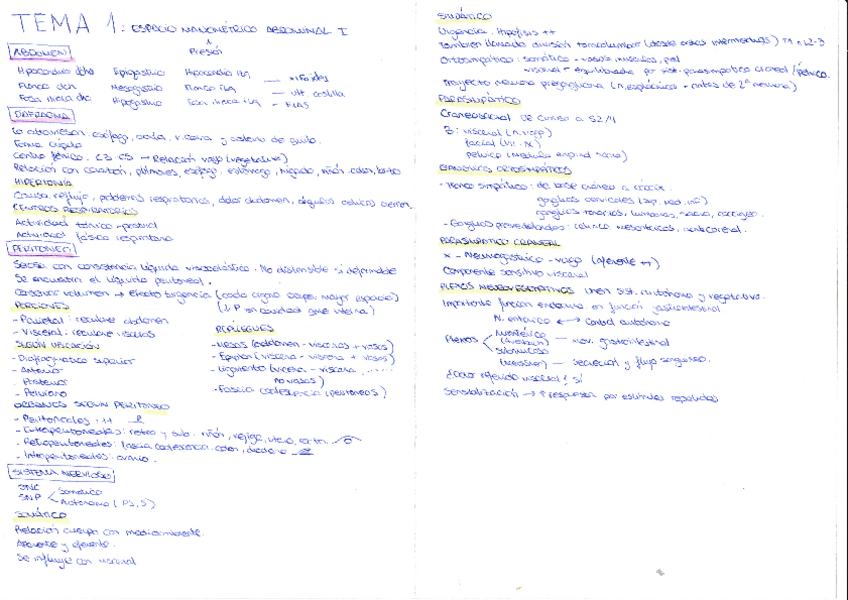 TEMA 1: ESPACIO MANOMÉTRICO ABDOMINAL I
Presión
ABDOMEN
Hipocondrio dcho Epigastrio Hipocondrio izq
Flanco dch Mesogastrio Flanco izq — ult. costilla
Fosa iliaca dc Hipogastrio Fosa iliaca izq - EIAS
DIAFRAGMA
Lo atraviesan: esófago, aorta, v. cava y
Forma cúpula
Centro frénico. C3-C5 → Relación vago (vegetativa)
Relación con corazón, pulmones, esófago, estómago, hígado, riñón, colon, bazo
HIPERTONÍA
Causa reflujo, problemas respiratorios, dolor abdomen,
CENTROS RESPIRATORIOS
Actividad tónico-postural
Actividad fásica respiratoria
PERITONEO
Serosa con consistencia líquida viscoelástica. No distensible si deformable
Se encuentra el líquido peritoneal.
Conservar volumen → efecto turgencia (cada órgano ocupa mayor espacio)
PORCIONES
- Parietal: recubre abdomen
- Visceral: recubre vísceras
SEGÚN UBICACIÓN
- Diafragmático superior
- Anterior
- Posterior
- Perineo
REPLIEGUES
- Mesos (abdomen - vísceras + vasos)
- Epiplon (víscera - víscera + vasos)
- Ligamento (víscera - víscera,
no vasos)
- Fascia coalescencia (peritoneos)
ORGANOS SEGÚN PERITONEO
- Peritoneales:
- Extraperitoneales: retro y sub. riñón, vejiga, útero,
- Retroperitoneales: fascia coalescencia. colon, duodeno
- Intraperitoneales: ovario.
SISTEMA NERVIOSO
SNC
SNP Somático
Autónomo (PS, S)
SOMÁTICO
Relación cuerpo con medioambiente.
Aferente y eferente.
Se influye con visceral
SIMPÁTICO
Urgencia. Hipófisis ++
También llamado división toracolumbar (desde astas intermedias) T1 a L2-3
Ortosimpático: somático - vasos, músculos, piel
visceral - equilibrado por sist. parasimpático craneal / pélvico.
Trayecto neurona preganglionar (n. esplácnico + astas de 2ª neurona)
PARASIMPÁTICO
Craneosacral de cráneo a S2/4
3: visceral (n. vago)
facial (VII-IX)
pélvico (médula espinal sacra)
GANGLIOS ORTOSIMPÁTICOS
- Tronco simpático: de base cráneo a cóccix
ganglios cervicales (sup, med, inf)
ganglios torácicos, lumbares, sacro, coccígeo.
- Ganglios prevertebrales: celíaco, mesentéricos,
PARASIMPÁTICO CRANEAL
X - Neumogástrico - vago (aferente ++)
Componente sensitivo visceral
PLEXOS NEUROVEGETATIVOS unen sist. autónomo y vegetativo.
Importante función endocrina en función gastrointestinal
N. entérico ←→ Control autónomo
Plexos Mientérico
(Auerbach) — mov. gastrointestinal
Submucoso
(Meissner) — secreción y flujo sanguíneo.
¿Dolor referido visceral? Sí
Sensibilización → ↑ respuesta por estímulos repetidos